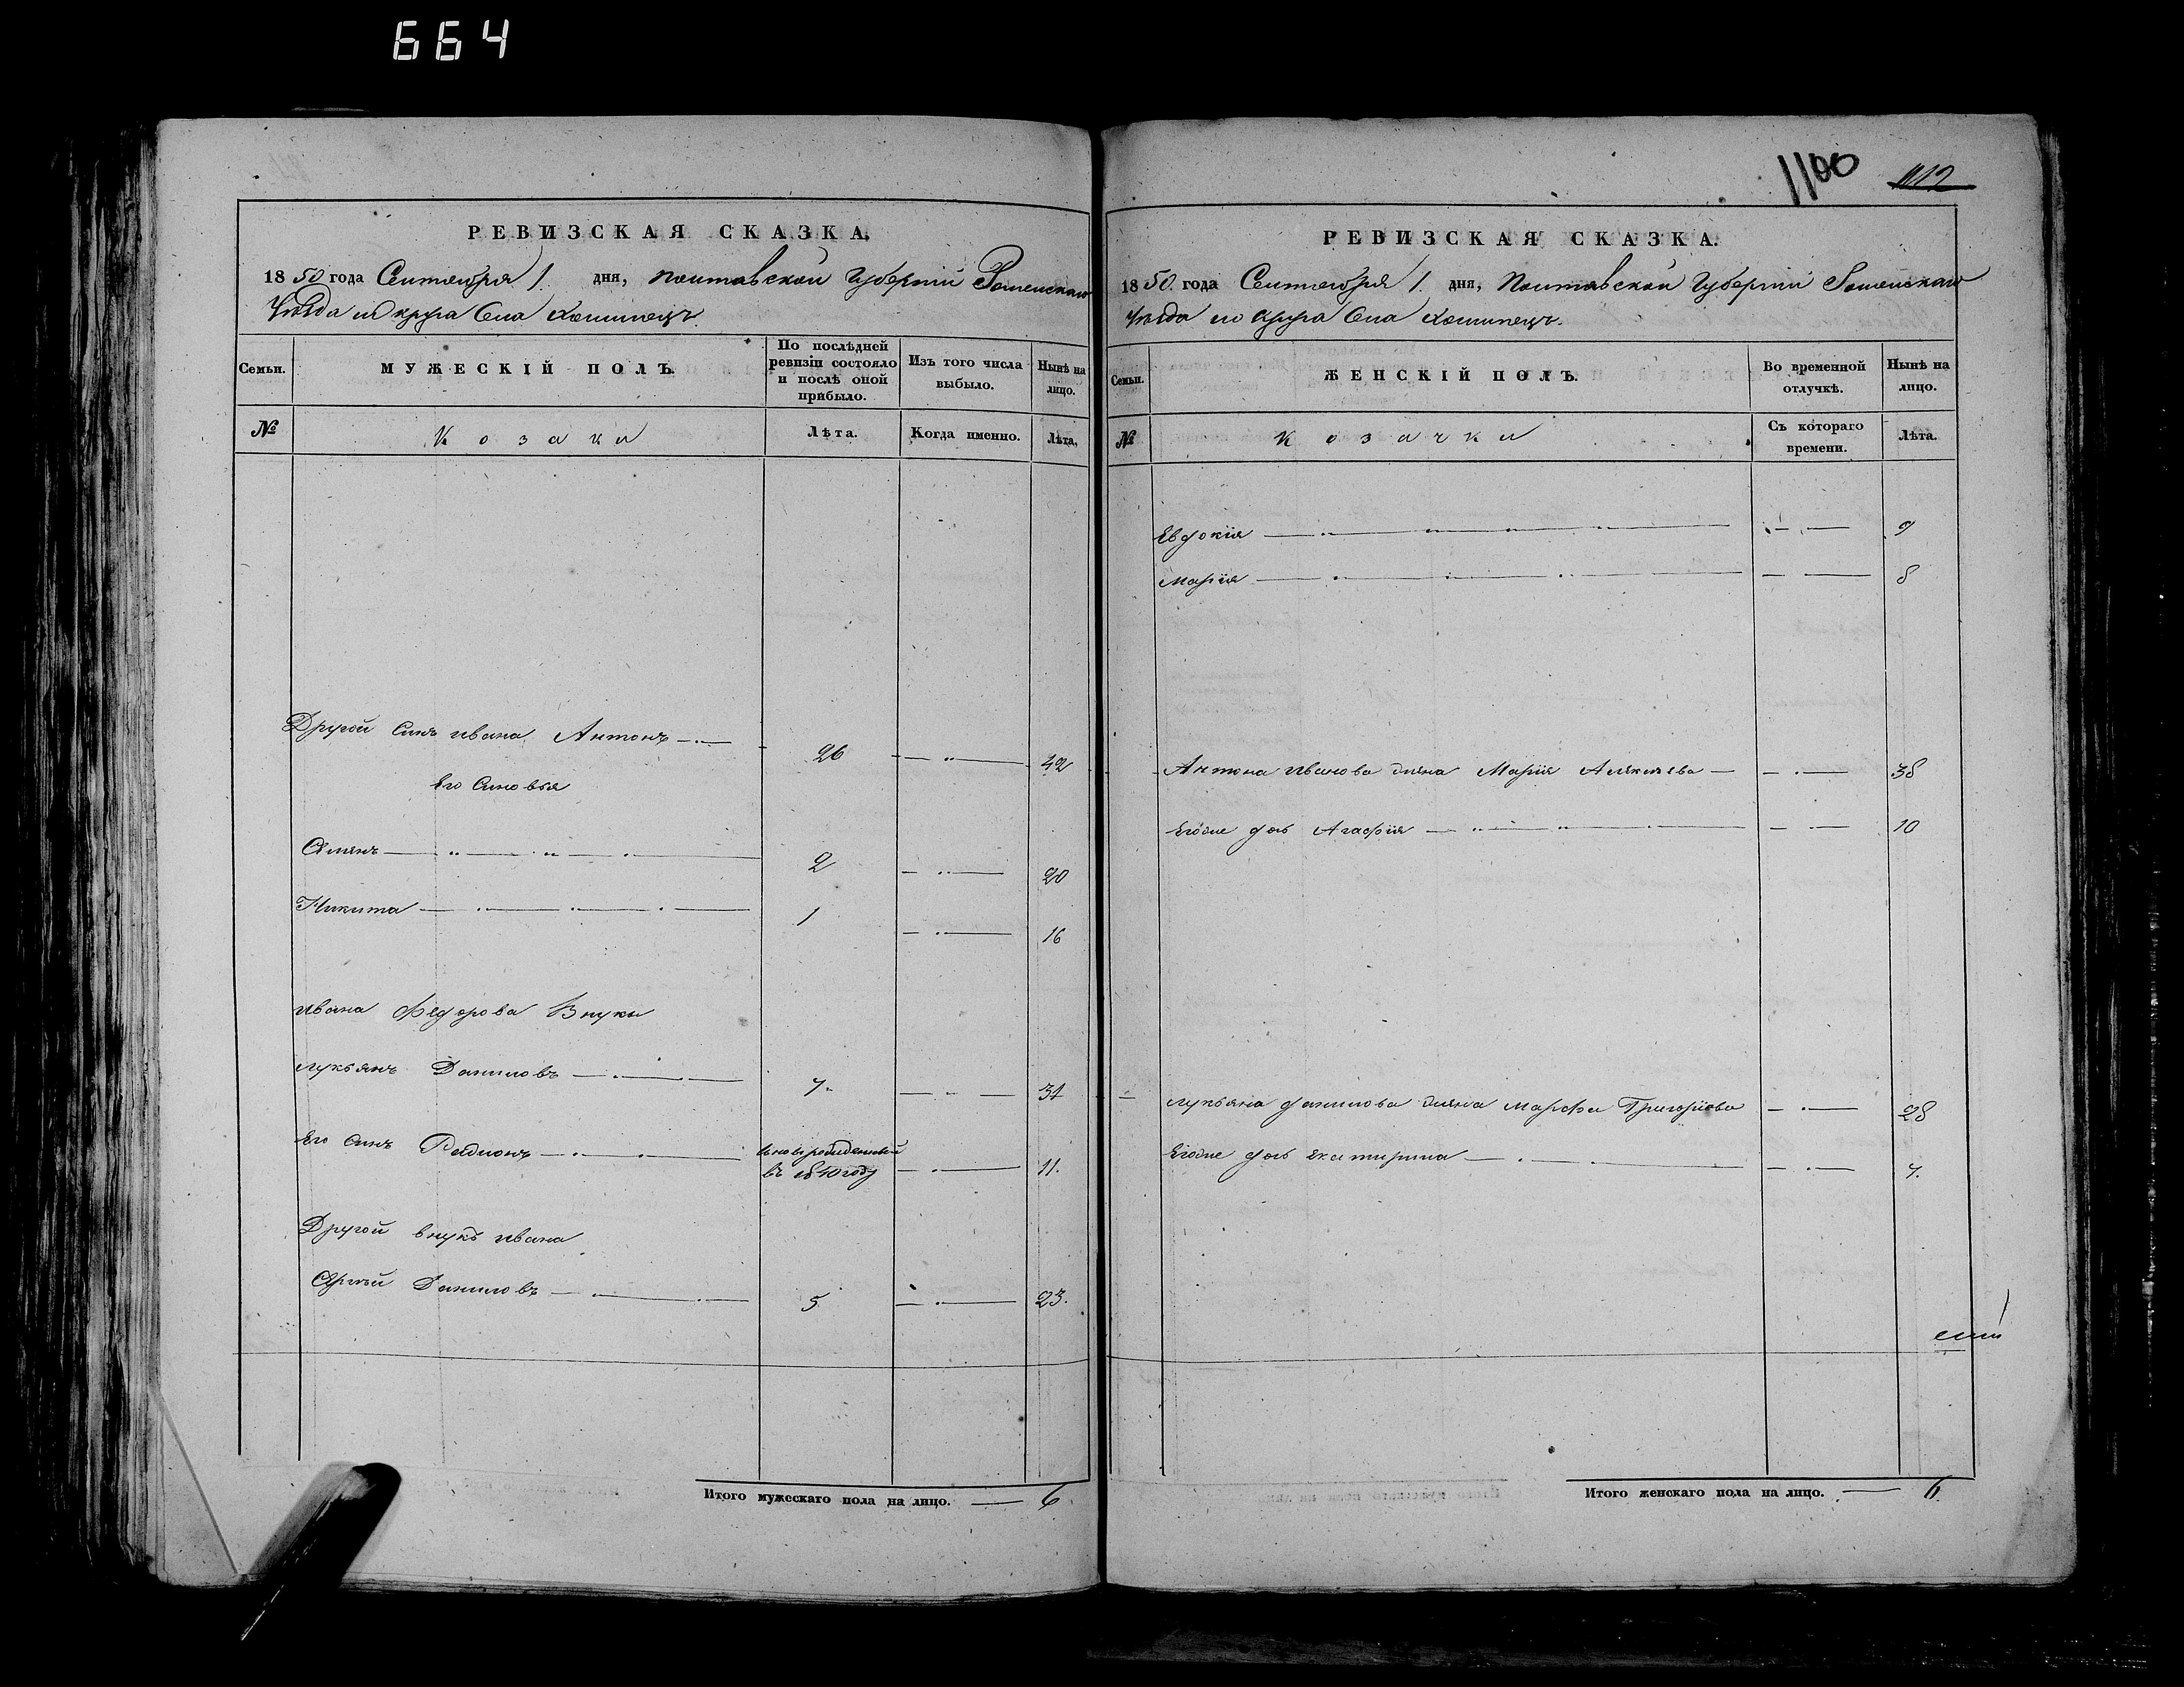 664
1100 1112
РЕВИЗСКАЯ СКАЗКА.
1850 года Сентебря 1. дня, Полтавской Губерніи Роменскаго
Уѣзда
Семьи.
МУЖЕСКІЙ ПОЛЪ.
По послѣдней ревизіи состояло и послѣ оной прибыло.
Изъ того числа выбыло.
Нынѣ на лицо.
№
Козаки
Лѣта.
Когда именно.
Лѣта.
Другой Синъ ивана Антонъ 26 42
Его Синовья
Семенъ 2 20
Никита 1 16
ивана Федорова Внуки
лукьянъ Даниловъ 7. 31
Его Синъ Радионъ вновь рожденный в 1840 году 11.
Другой внукъ ивана
Сергѣй Даниловъ 5 23.
Итого мужескаго пола на лицо. 6
РЕВИЗСКАЯ СКАЗКА.
1850. года Сентебря 1. дня, Полтавской Губерніи Роменскаго
Уѣзда
Семьи.
ЖЕНСКІЙ ПОЛЪ.
Во временной отлучкѣ.
Нынѣ на лицо.
№
Козачки
Съ котораго времени.
Лѣта.
Евдокия 9
Мария 8
Антона иванова жена Мария Алексеева 38
Егоже дочь Агафия 10
лукьяна данилова жена марфа Григориева 28
Егоже дочь екатирина 7.
Итого женскаго пола на лицо. 6